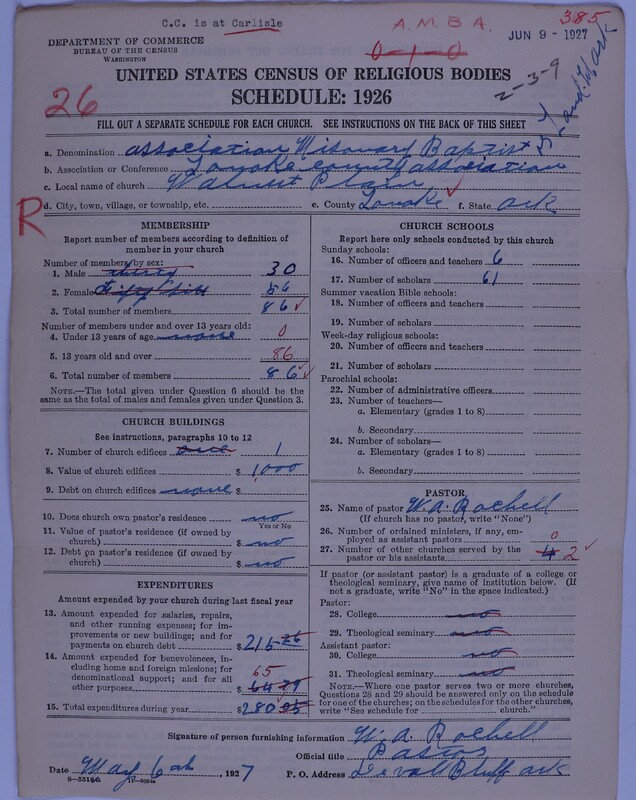 C.C. is at Carlisle
A.M.B.A.
385
JUN 9 - 1927
DEPARTMENT OF COMMERCE
BUREAU OF THE CENSUS
WASHINGTON
0-1-0
2-3-9
UNITED STATES CENSUS OF RELIGIOUS BODIES
26
SCHEDULE: 1926
FILL OUT A SEPARATE SCHEDULE FOR EACH CHURCH. SEE INSTRUCTIONS ON THE BACK OF THIS SHEET
a. Denomination association Misonary Baptist
b. Association or Conference Lonoke county association
c. Local name of church Walnut Plain
R
d. City, town, village, or township, etc. e. County Lonoke f. State ark
MEMBERSHIP
Report number of members according to definition of member in your church
Number of members by sex:
1. Male thirty 30
2. Female 56
3. Total number of members 86
Number of members under and over 13 years old:
4. Under 13 years of age none 0
5. 13 years old and over 86
6. Total number of members 86
NOTE.—The total given under Question 6 should be the same as the total of males and females given under Question 3.
CHURCH BUILDINGS
See instructions, paragraphs 10 to 12
7. Number of church edifices one 1
8. Value of church edifices $ 1,000
9. Debt on church edifices none $
10. Does church own pastor's residence no
Yes or No
11. Value of pastor's residence (if owned by church) $ no
12. Debt on pastor's residence (if owned by church) $ no
EXPENDITURES
Amount expended by your church during last fiscal year
13. Amount expended for salaries, repairs, and other running expenses; for improvements or new buildings; and for payments on church debt $ 215 26
14. Amount expended for benevolences, including home and foreign missions; for denominational support; and for all other purposes 65 $ 64 79
15. Total expenditures during year $ 280 05
CHURCH SCHOOLS
Report here only schools conducted by this church
Sunday schools:
16. Number of officers and teachers 6
17. Number of scholars 61
Summer vacation Bible schools:
18. Number of officers and teachers
19. Number of scholars
Week-day religious schools:
20. Number of officers and teachers
21. Number of scholars
Parochial schools:
22. Number of administrative officers
23. Number of teachers—
a. Elementary (grades 1 to 8)
b. Secondary
24. Number of scholars—
a. Elementary (grades 1 to 8)
b. Secondary
PASTOR
25. Name of pastor W. A. Rochell
(If church has no pastor, write "None")
26. Number of ordained ministers, if any, employed as assistant pastors 0
27. Number of other churches served by the pastor or his assistants 4 2
If pastor (or assistant pastor) is a graduate of a college or theological seminary, give name of institution below. (If not a graduate, write "No" in the space indicated.)
Pastor:
28. College no
29. Theological seminary no
Assistant pastor:
30. College no
31. Theological seminary no
NOTE.—Where one pastor serves two or more churches, Questions 28 and 29 should be answered only on the schedule for one of the churches; on the schedules for the other churches, write "See schedule for church."
Signature of person furnishing information W. A. Rochell
Official title Pastor
Date May 6th, 1927 P. O. Address Devalls Bluff ark